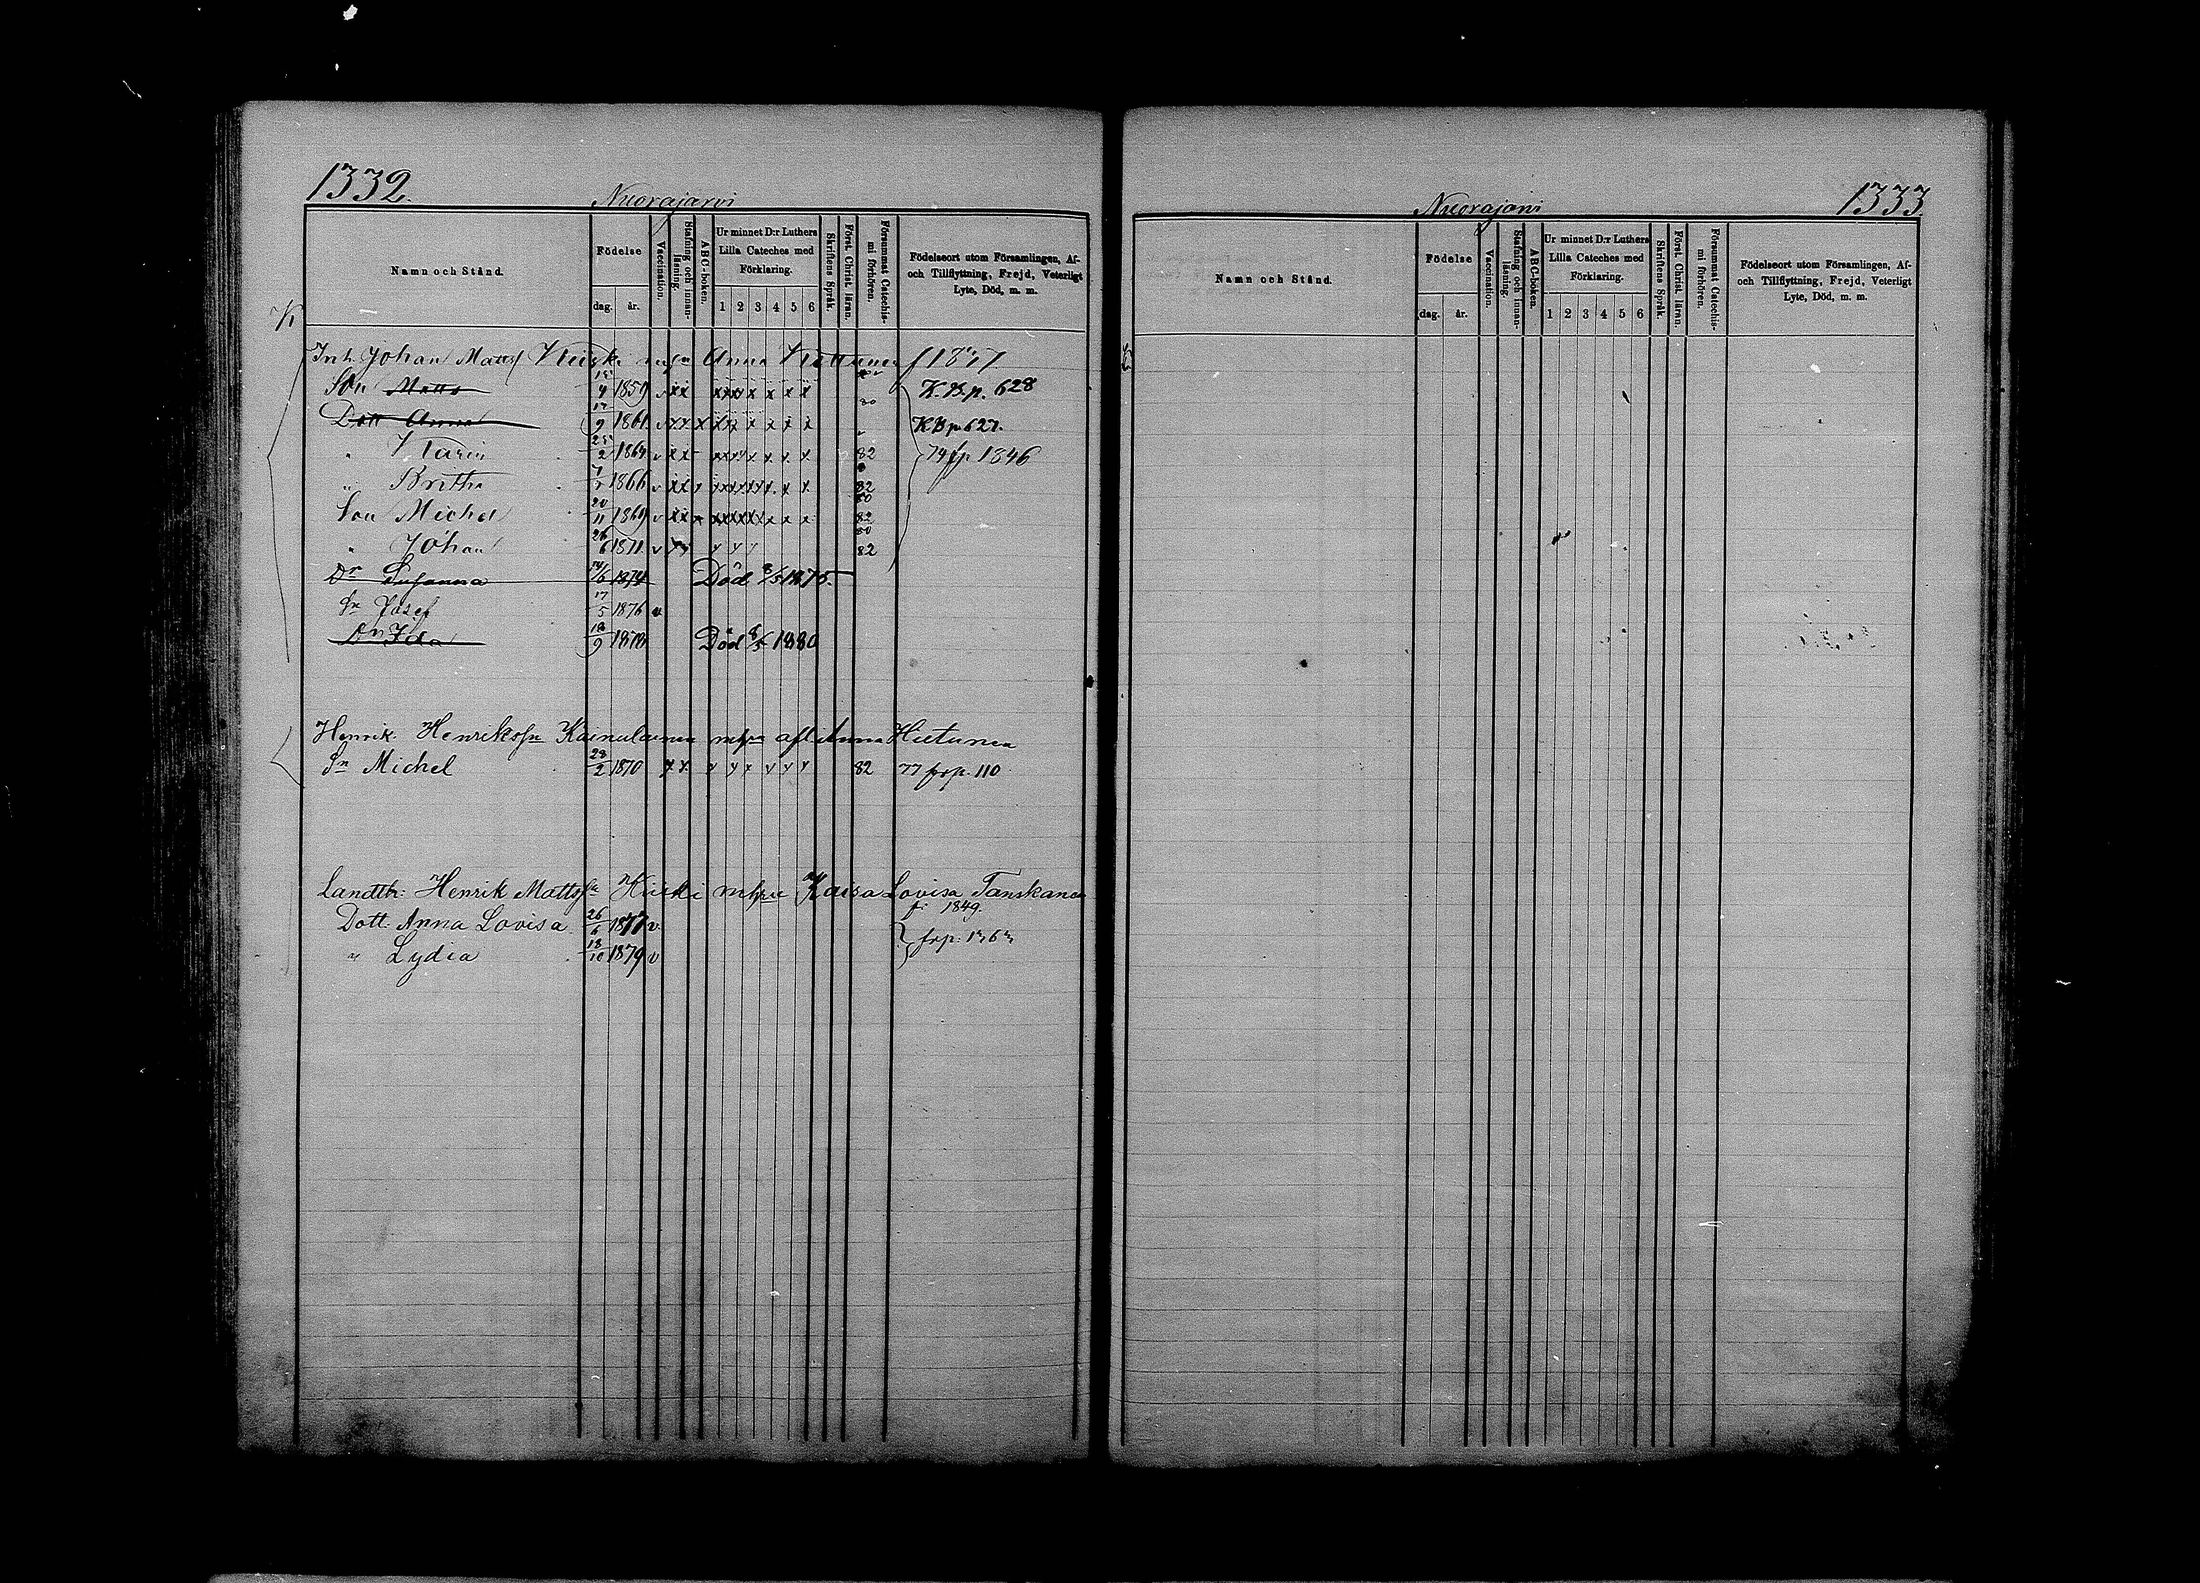 1332.
Nuorajarvi
Namn och Stånd.
Födelse
dag. år.
Vaccination.
Stafning och innanläsning.
ABC-boken.
Ur minnet D:r Luthers Lilla Cateches med Förklaring.
1 2 3 4 5 6
Skriftens Språk.
Först. Christ. läran.
Försummat Catechismi förhören.
Födelseort utom Församlingen, Af- och Tillflyttning, Frejd, Veterligt Lyte, Död, m. m.
Inh. Johan Matts Anna
Son Matts 4 1859 x x x x x x x K.B.p. 628
Dott Anna 17/9 1861 x x x x x x x x KB p 627.
" Karin 25/2 1864 x x x x x x x 82 74 fp 1346
" Britha 1866 x x x x x x x 82
Son Michel 20/11 1869 x x x x x x x 82
" Johan 26/6 1871 v y y y y y 82
Dr Susanna 1874 Död 8/5 1875.
Sn Josef 17/5 1876 v
Dr Ida 18/9 1878 Död 8/5 1880
Henrik Henrikssn Kainulainen mhfru afl Anna Hietunen
Sn Michel 28/2 1870 y y y y y y y y 82 77 frp. 110
Landtb: Henrik Mattssn Kiiski mhfru Kaisa Lovisa Tanskanen
f: 1849.
Dott. Anna Lovisa 26/6 1877 v.
" Lydia 18/10 1879 v
1333.
Nuorajarvi
Namn och Stånd.
Födelse
dag. år.
Vaccination.
Stafning och innanläsning.
ABC-boken.
Ur minnet D:r Luthers Lilla Cateches med Förklaring.
1 2 3 4 5 6
Skriftens Språk.
Först. Christ. läran.
Försummat Catechismi förhören.
Födelseort utom Församlingen, Af- och Tillflyttning, Frejd, Veterligt Lyte, Död, m. m.